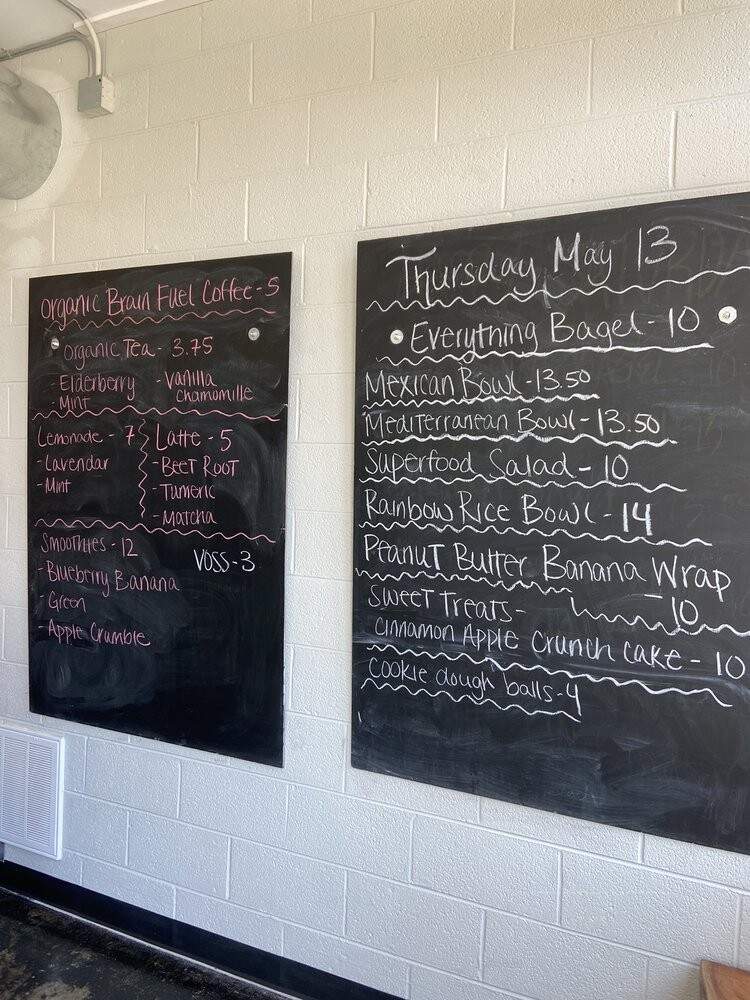 Organic Brain Fuel Coffee - 5
Organic Tea - 3.75
- Elderberry
- Mint
- Vanilla
Chamomille
Lemonade - 7
- Lavendar
- Mint
Latte - 5
- Beet Root
- Tumeric
- Matcha
Smoothies - 12
- Blueberry Banana
- Green
- Apple Crumble
VOSS - 3
Thursday May 13
Everything Bagel - 10
Mexican Bowl - 13.50
Mediterranean Bowl - 13.50
Superfood Salad - 10
Rainbow Rice Bowl - 14
Peanut Butter Banana Wrap
- 10
Sweet Treats -
Cinnamon Apple Crunch cake - 10
cookie dough balls - 4